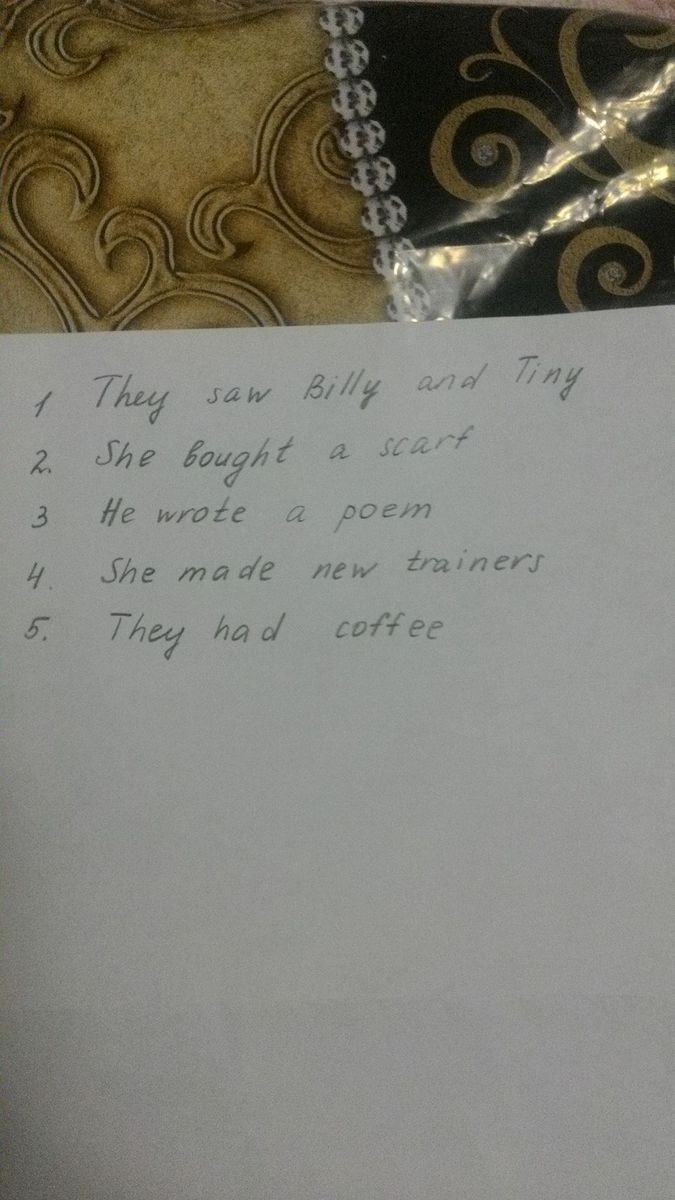 1 They saw Billy and Tiny
2. She bought a scarf
3 He wrote a poem
4. She made new trainers
5. They had coffee